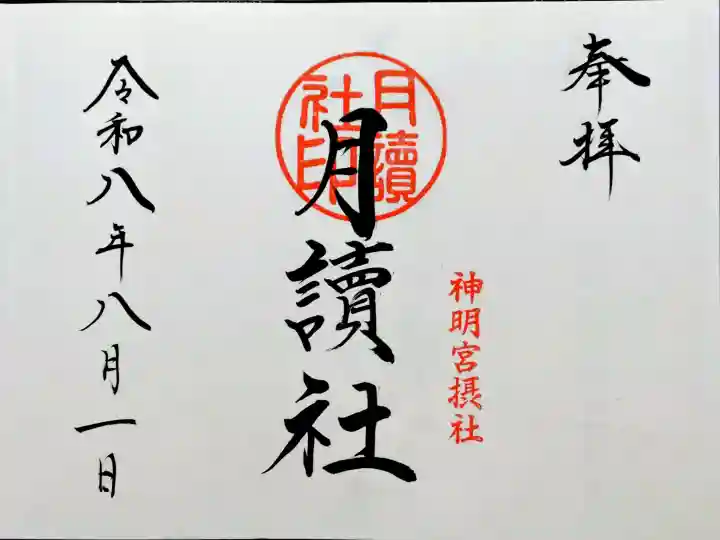 奉拝
神明宮摂社
月讀社
月讀社印
令和八年八月一日